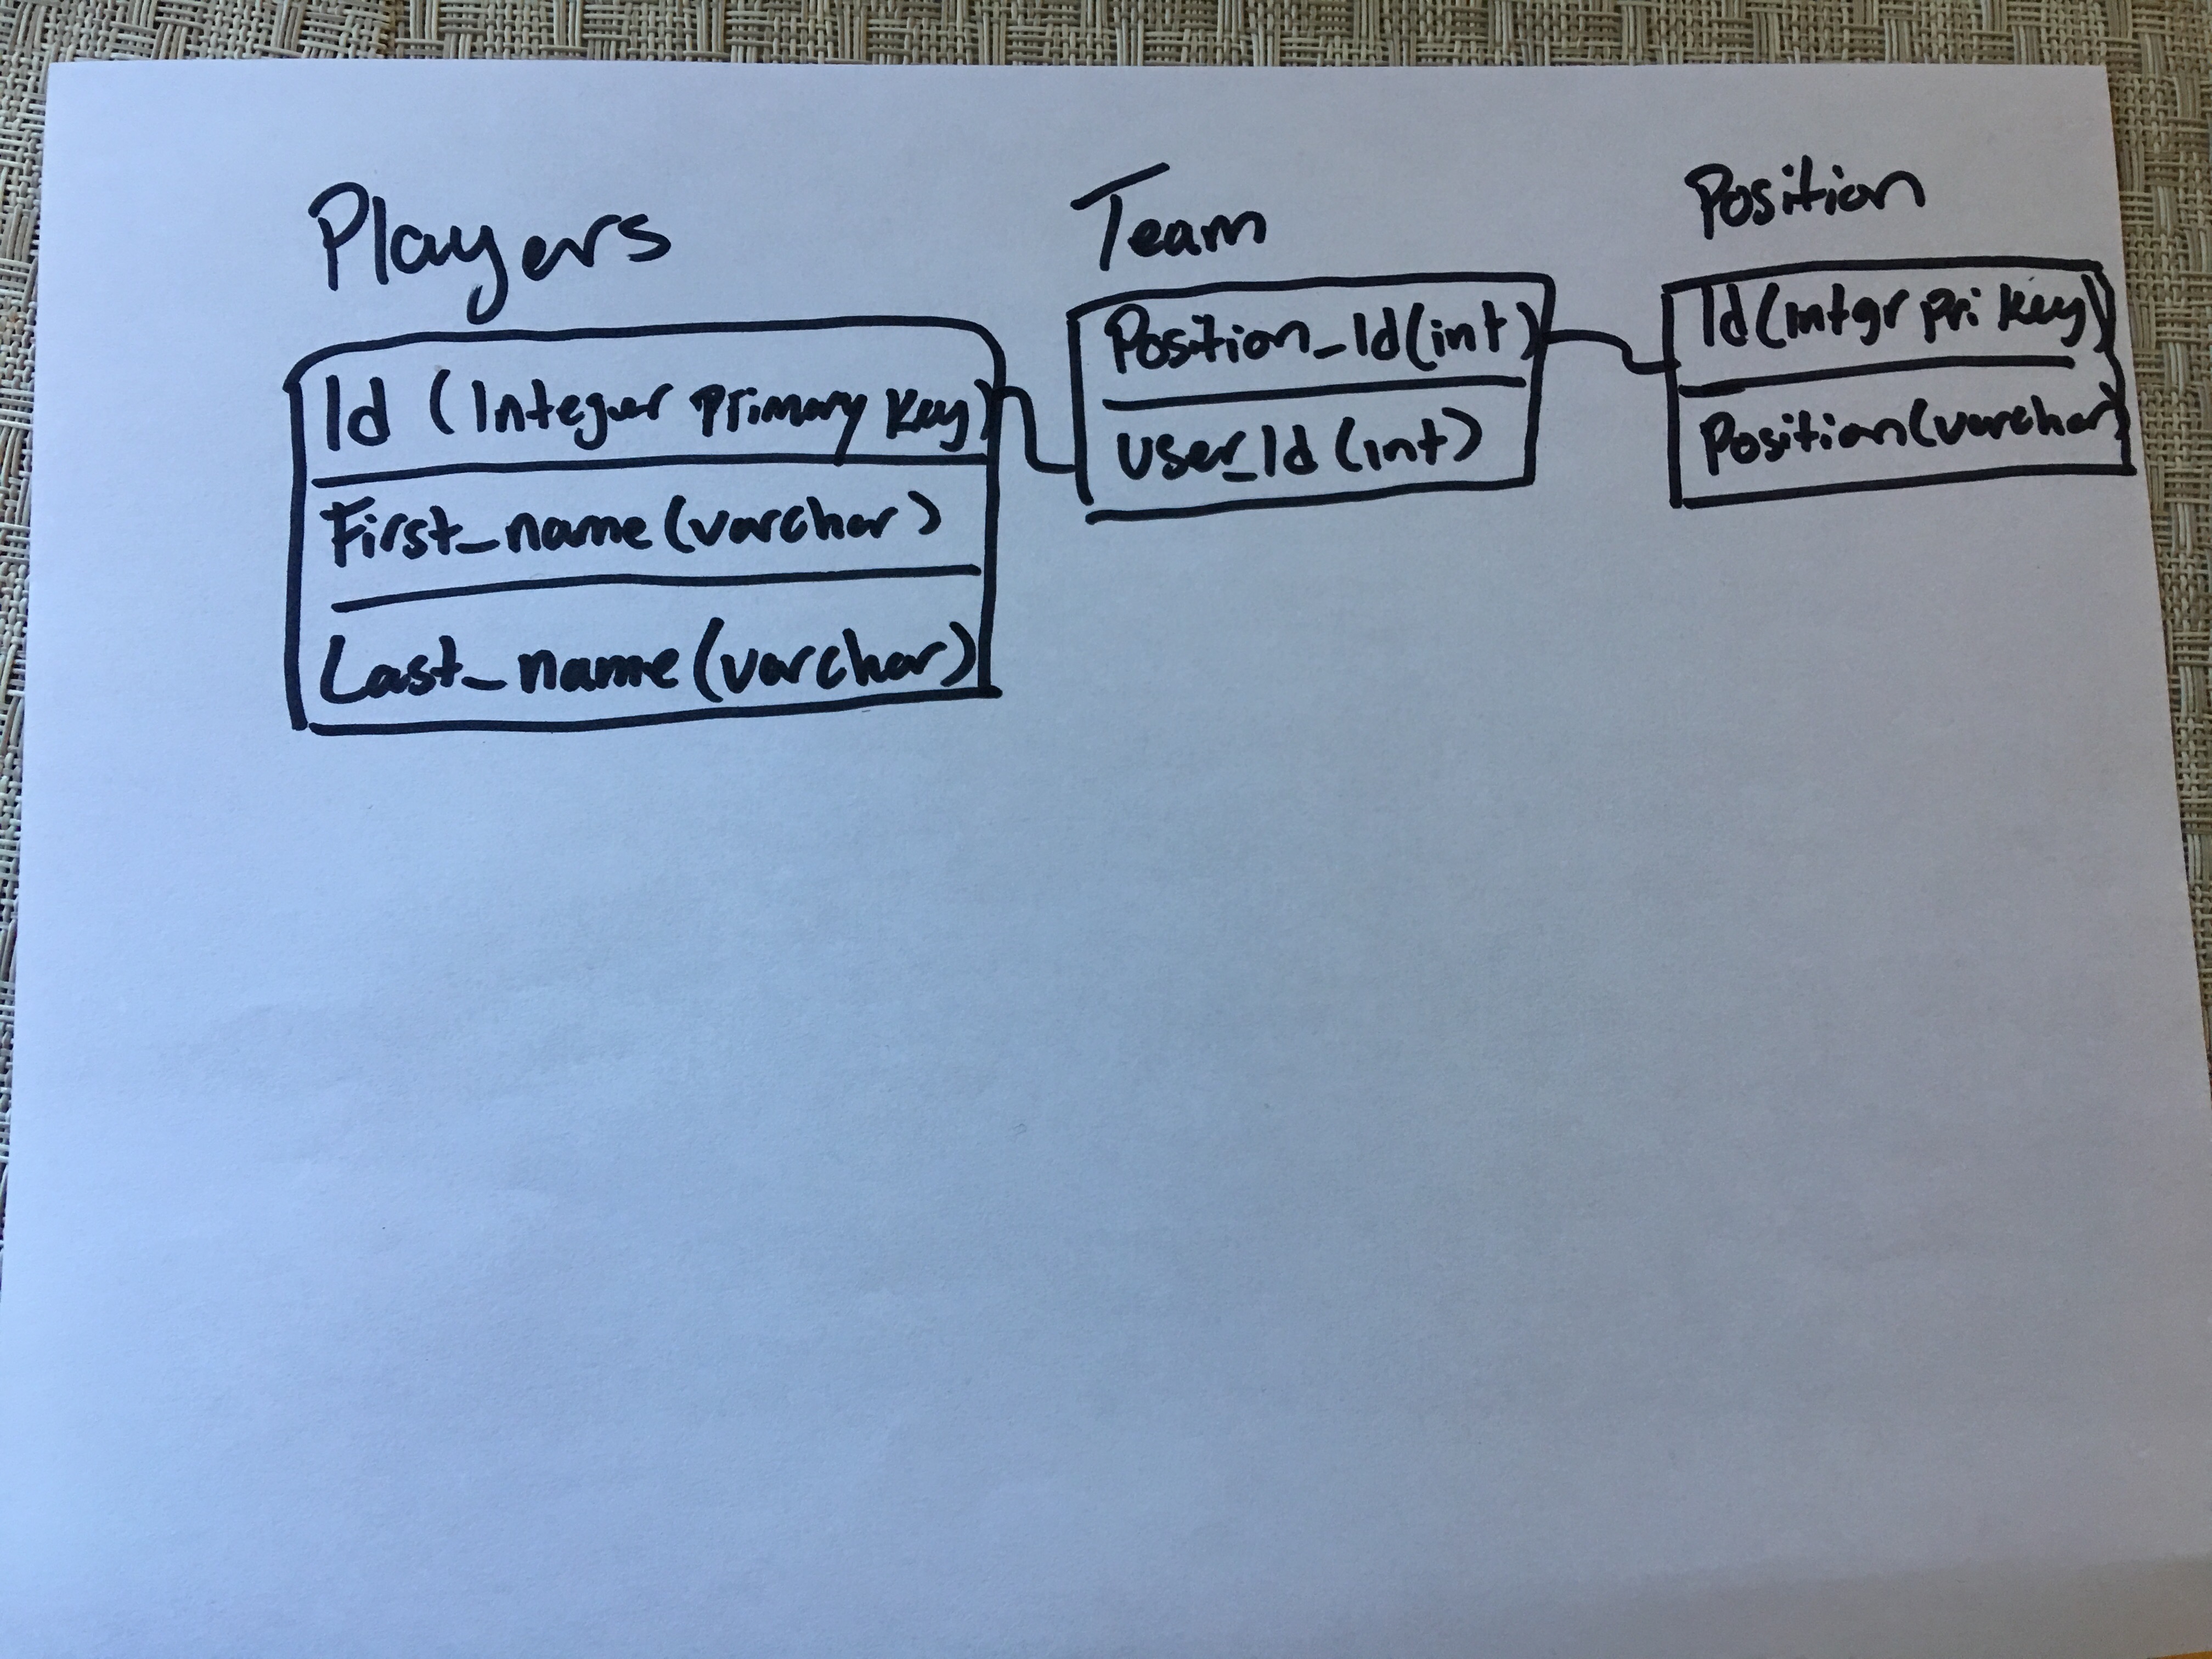 Players
Id (Integer Primary Key)
First_name (varchar)
Last_name (varchar)
Team
Position_Id (int)
User_Id (int)
Position
Id (intgr pri key)
Position (varchar)